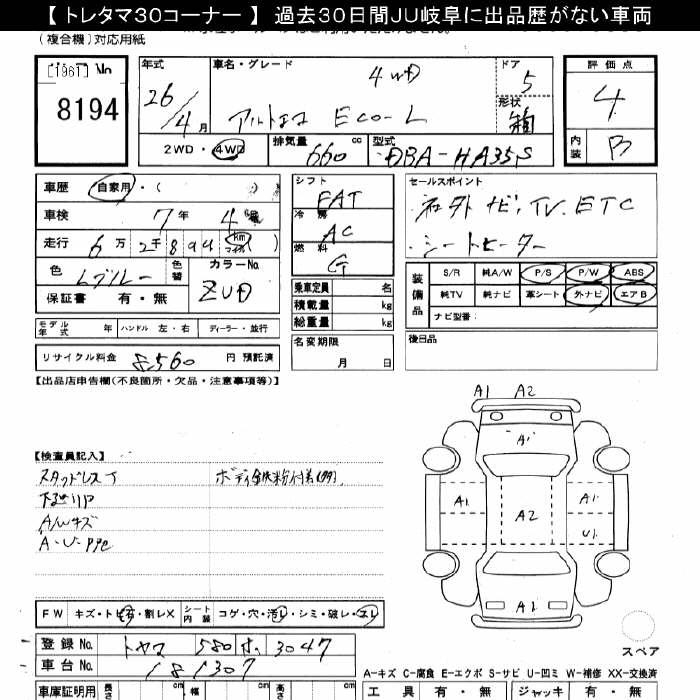 【 トレタマ30コーナー 】 過去30日間JU岐阜に出品歴がない車両
(複合機)対応用紙
[1961] No
8194
年式 26/4月
車名・グレード 4WD
アルトエコ ECO-L
ドア 5
形状 箱
評価点 4
内装 B
2WD・4WD 排気量 660 cc 型式 DBA-HA35S
車歴 自家用・( )
車検 7年 4
走行 6万2千8 km マイル ( )
色 Lブルー 色替 カラーNo. ZUD
保証書 有・無
モデル年式 年 ハンドル 左・右 ディーラー・並行
リサイクル料金 8,560 円 預託済
シフト FAT
冷房 AC
燃料 G
乗車定員 名
積載量 kg
総重量 kg
名変期限
月 日
セールスポイント
社外ナビ,TV.ETC
シートヒーター
装備品 S/R 純A/W P/S P/W ABS
純TV 純ナビ 革シート 外ナビ エアB
ナビ型番:
後日品
【出品店申告欄(不良箇所・欠品・注意事項等)】
【検査員記入】
スタッドレスT
下廻りP
A/Wキズ
A-U-PPC
ボディ鉄粉付着
A1 A2
A1
A1 A2 A1
U1
A1
スペア
FW キズ・トビ石・割レX シート内装 コゲ・穴・汚レ・シミ・破レ・スレ
登録 No. トヤマ 580 3047
車台 No. 181307
車庫証明用 長さ cm 幅 cm 高さ cm
A-キズ C-腐食 E-エクボ S-サビ U-凹ミ W-補修 XX-交換済
工具 有・無 ジャッキ 有・無